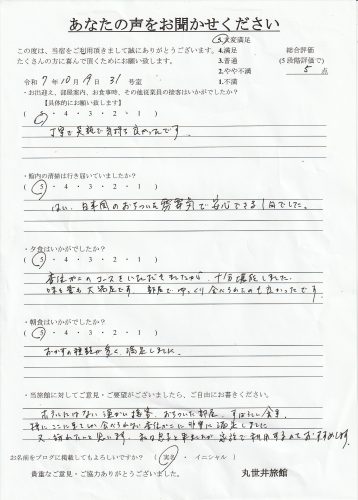 あなたの声をお聞かせください
この度は、当宿をご利用頂きまして誠にありがとうございます。
たくさんの方に喜んで頂くためにお願い致します。
5.大変満足
4.満足
3.普通
2.やや不満
1.不満
総合評価
(5段階評価で)
5 点
令和 7年 10月 19日 31 号室
・お出迎え、部屋案内、お食事時、その他従業員の接客はいかがでしたか?
【具体的にお願い致します】
( 5・4・3・2・1 )
丁寧で笑顔で気持ち良かったです。
・館内の清掃は行き届いていましたか?
( 5・4・3・2・1 )
はい、日本間のおちついた雰囲気で安心できる1日でした。
・夕食はいかがでしたか?
( 5・4・3・2・1 )
のコースをいただきましたから、十分堪能しました。
味も量も大満足です。部屋でゆっくり食べられるのも良かったです
・朝食はいかがでしたか?
( 5・4・3・2・1 )
おかずの種類が多く、満足しました
・当旅館に対してご意見・ご要望がございましたら、ご自由にお書きください。
ホテルにはない温かい接客、おちついた部屋、すばらしい食事、
特にここに来てしか食べられない 非常に満足しました
又、訪れたいと思います。
お名前をブログに掲載してもよろしいですか? ( 実名 ・ イニシャル )
貴重なご意見・ご協力ありがとうございました。
丸世井旅館